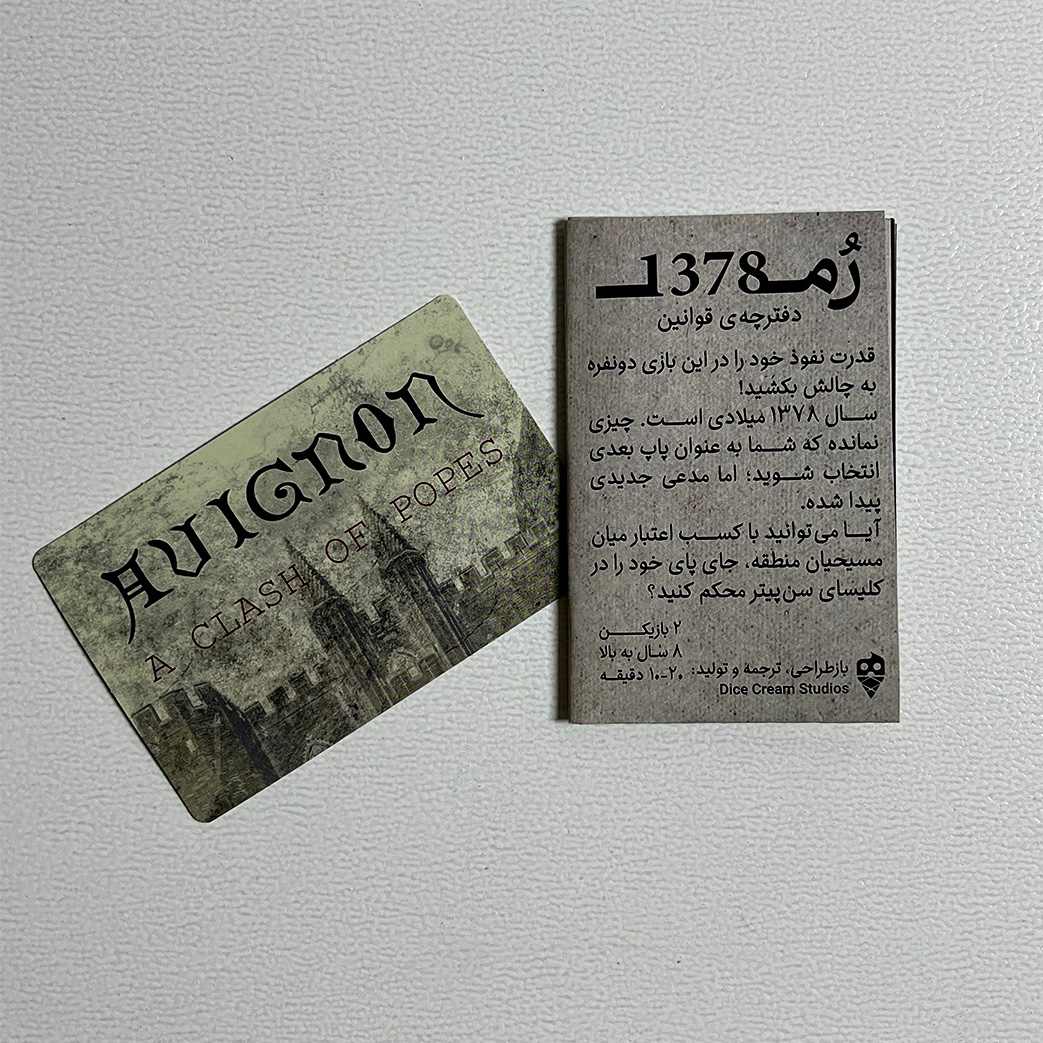 AVIGNON
A CLASH OF POPES
رُمـ1378ـ
دفترچه‌ی قوانین
قدرت نفوذ خود را در این بازی دونفره
به چالش بکشید!
سـال ۱۳۷۸ میلادی اسـت. چیزی
نمانده که شـما به عنوان پاپ بعدی
انتخاب شـوید؛ اما مدعی جدیدی
پیدا شده.
آیـا می‌توانید با کسـب اعتبار میان
مسیحیان منطقه، جای پای خود را در
کلیسای سن‌پیتر محکم کنید؟
۲ بازیکـن
۸ سال به بالا
۱۰-۲۰ دقیقـه
بازطراحی، ترجمه و تولید:
Dice Cream Studios